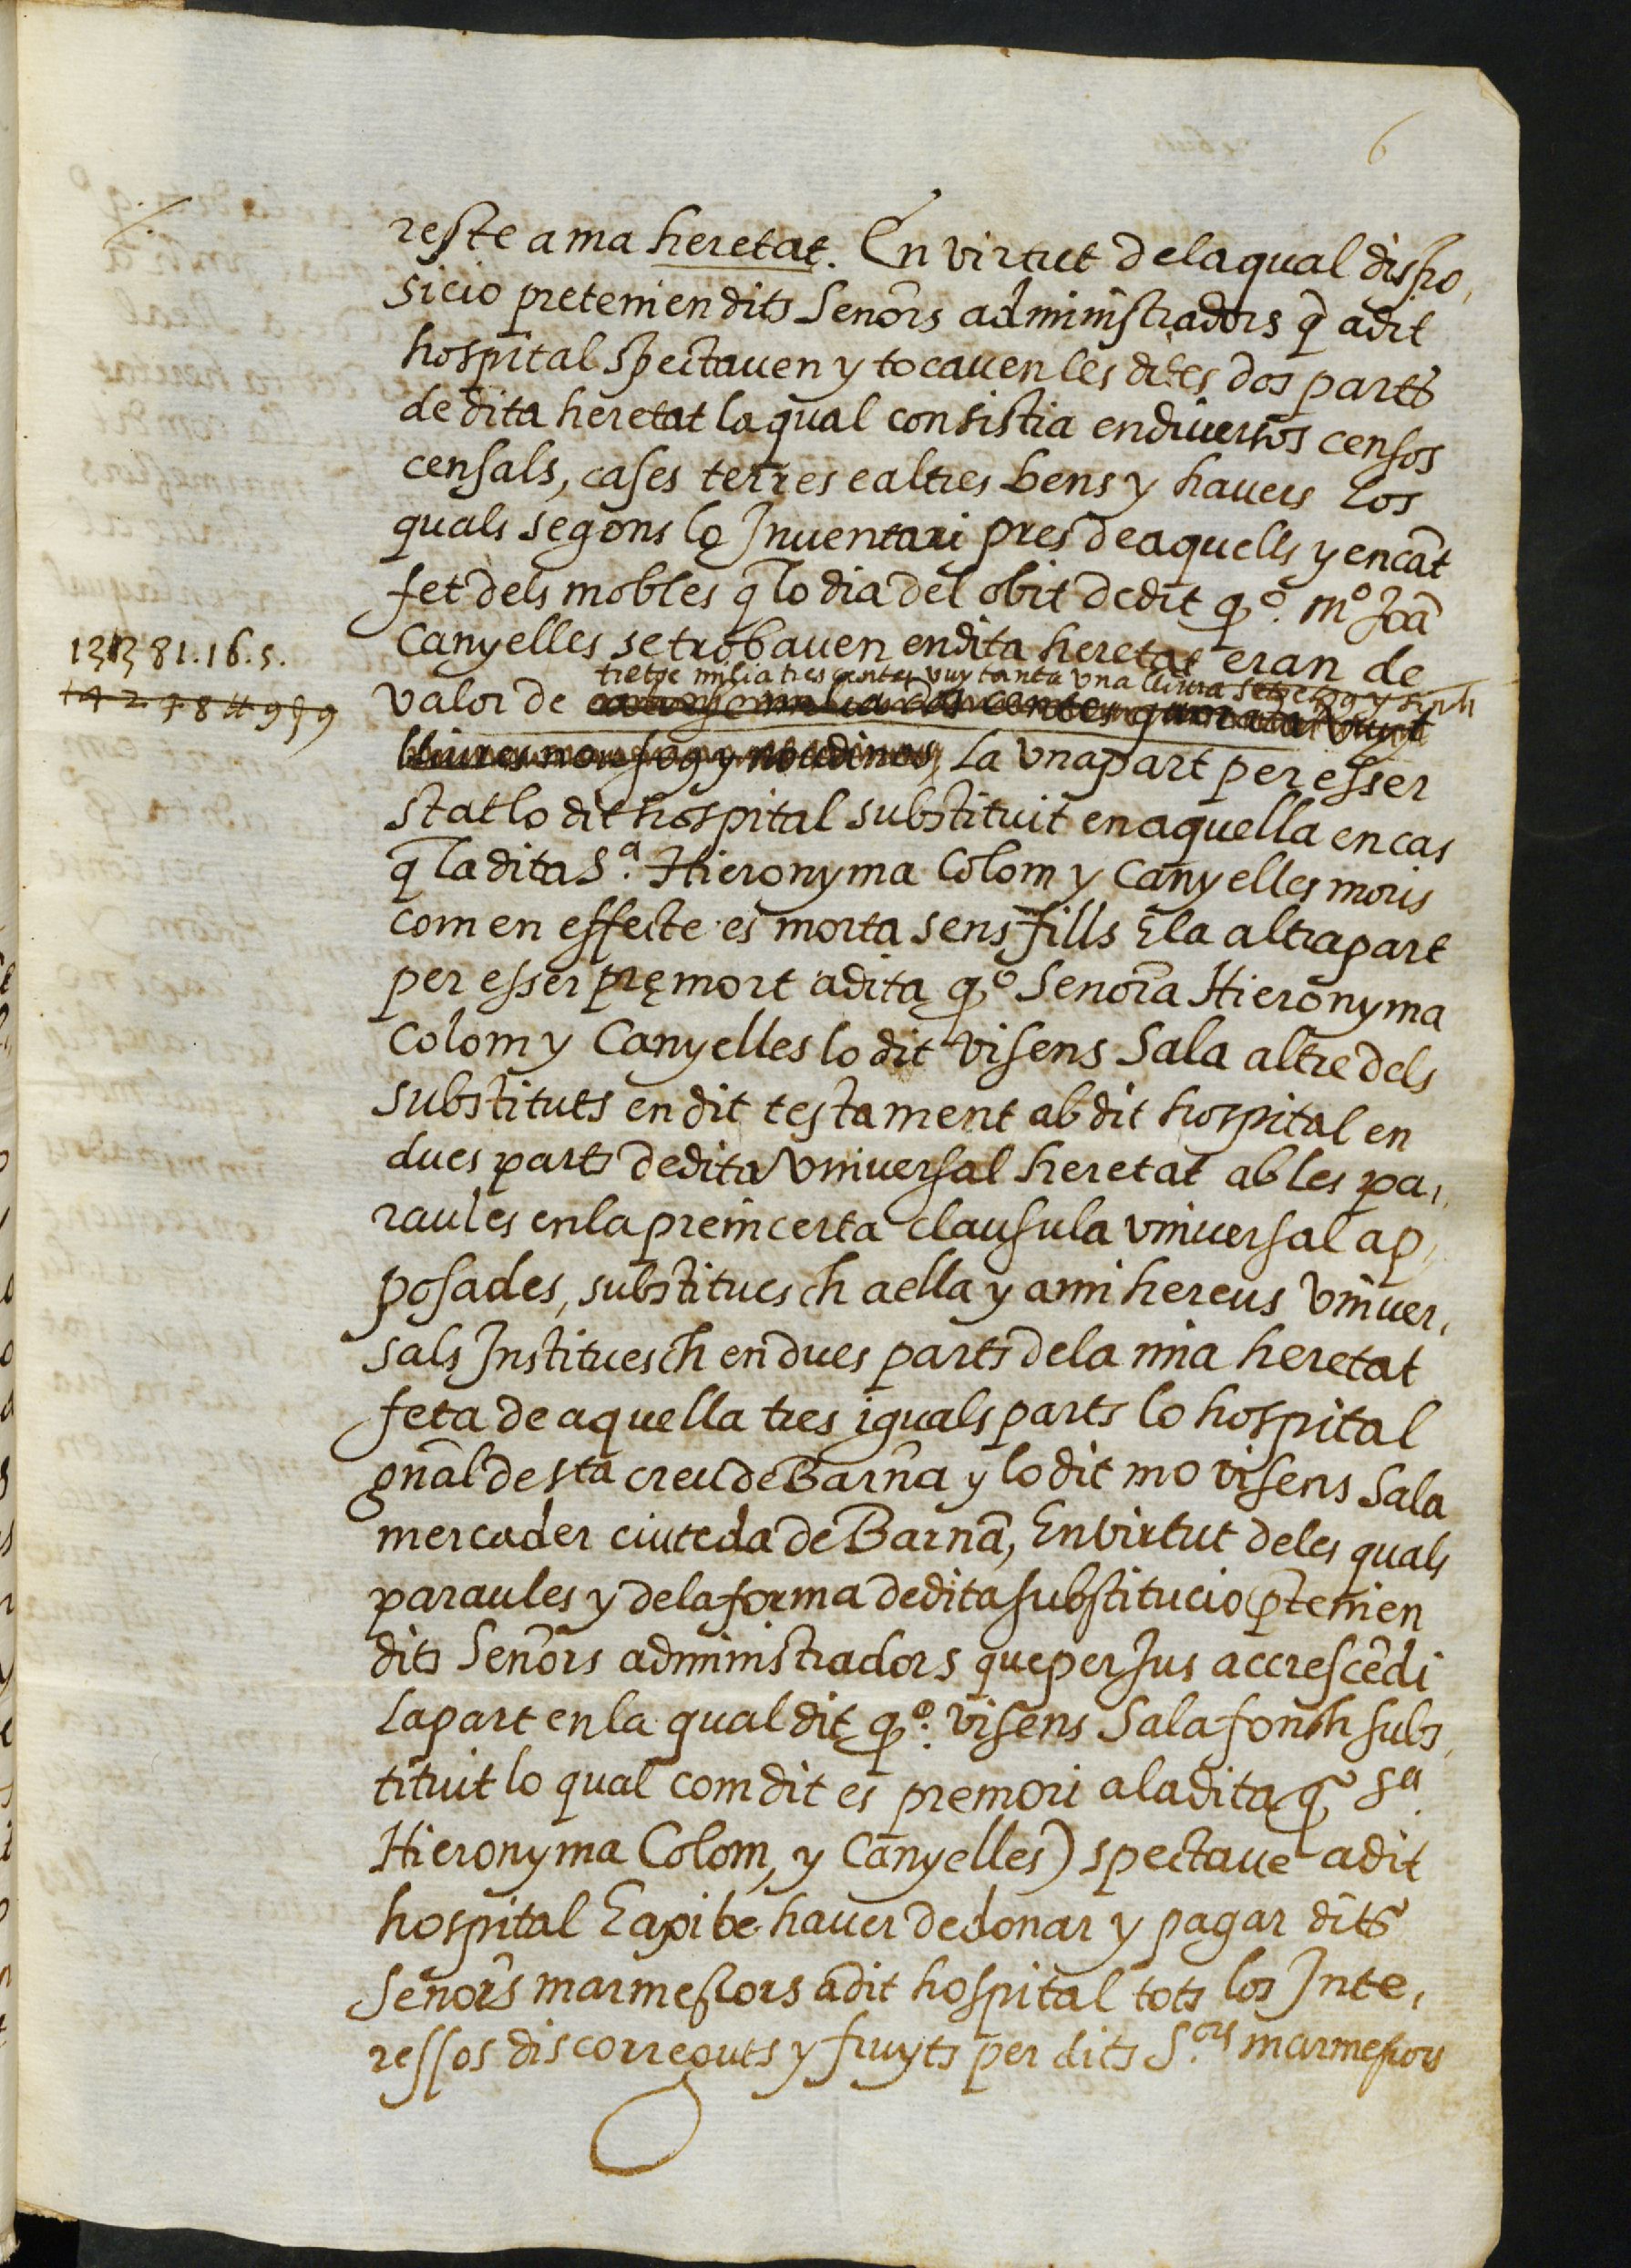 6
reste a ma heretat. En virtut de la qual dispo,
sicio pretenien dits Senõrs administradors q̃ a dit
hospital spectaven y tocaven les dites dos parts
de dita heretat la qual consistia en diversos censos
censals, cases terres e altres bens y havers los
quals segons lo Inventari pres de aquells y encãt
fet dels mobles q̃ lo dia del obit de dit q̊. mº Joã
Canyelles se trobaven en dita heretat eran de
13 m 381.16.5.
14248 ll 9 s 9
tretze milia trescentes vuytanta una lliura setze sos y sinch
valor de catorze milia dos centes quoranta vuyt
lliures nou sos y nou dines, la una part per esser
stat lo dit hospital substituit en aquella en cas
q̃ la dita Sª. Hieronyma Colom y Canyelles moris
com en effecte es morta sens fills E la altra part
per esser premort a dita qº Senõra Hieronyma
Colom y Canyelles lo dit Visens Sala altre dels
substituts en dit testament ab dit hospital en
dues parts de dita universal heretat ab les pa,
raules en la preincerta clausula universal ap,
posades, substituesch a ella y a mi hereus univer,
sals Instituesch en dues parts de la mia heretat
feta de aquella tres iguals parts lo hospital
gñal de sta creu de Barña y lo dit mo visens Sala
mercader ciuteda de Barnã, En virtut de les quals
paraules y de la forma de dita substitucio p̃tenien
dits Senõrs administradors que per Jus accrescẽdi
La part en la qual dit qº. Visens Sala fonch subs,
tituit lo qual com dit es premori a la dita q̃ Sª.
Hieronyma Colom, y Canyelles) spectave a dit
hospital E axi be haver de donar y pagar dits
Senõrs marmessors a dit hospital tots los Inte,
ressos discorreguts y fruyts per dits S.ors marmessors